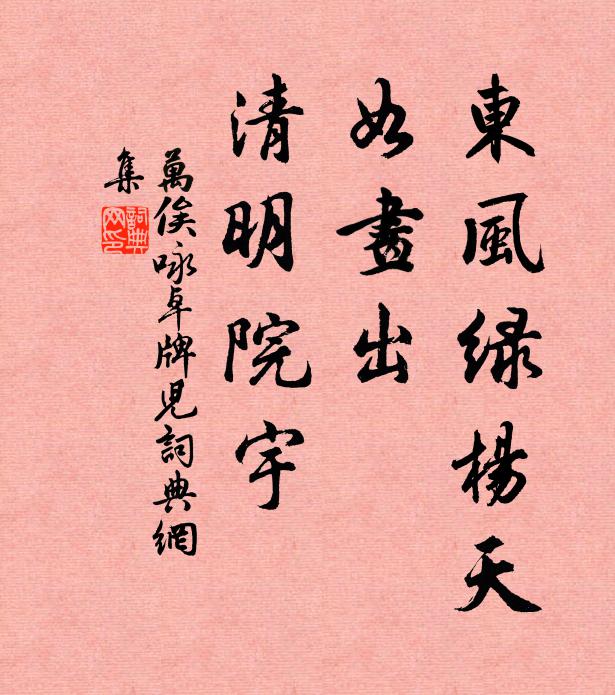 東風綠楊天
如畫出
清明院宇
萬俟咏卓牌兒詞典網
集
詞典
网印